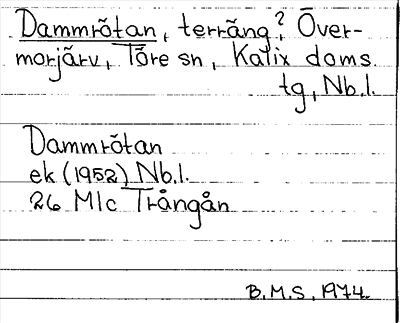 Dammrötan, terräng? Över-
morjärv, Töre sn, Kalix doms.
tg, Nb.l.
Dammrötan
ek (1952) Nb.l.
26 Mlc Trångån
B.M.S, 1974.